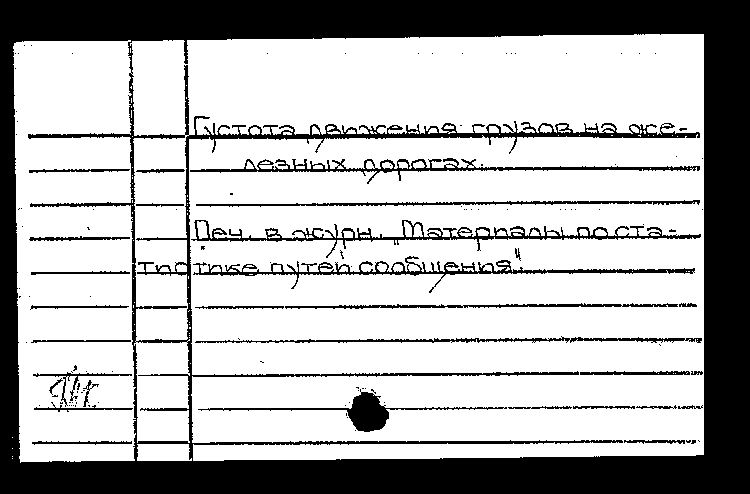 Густота движения грузов на же-
лезных дорогах.
Печ. в журн. „Материалы по ста-
тистике путей сообщения".